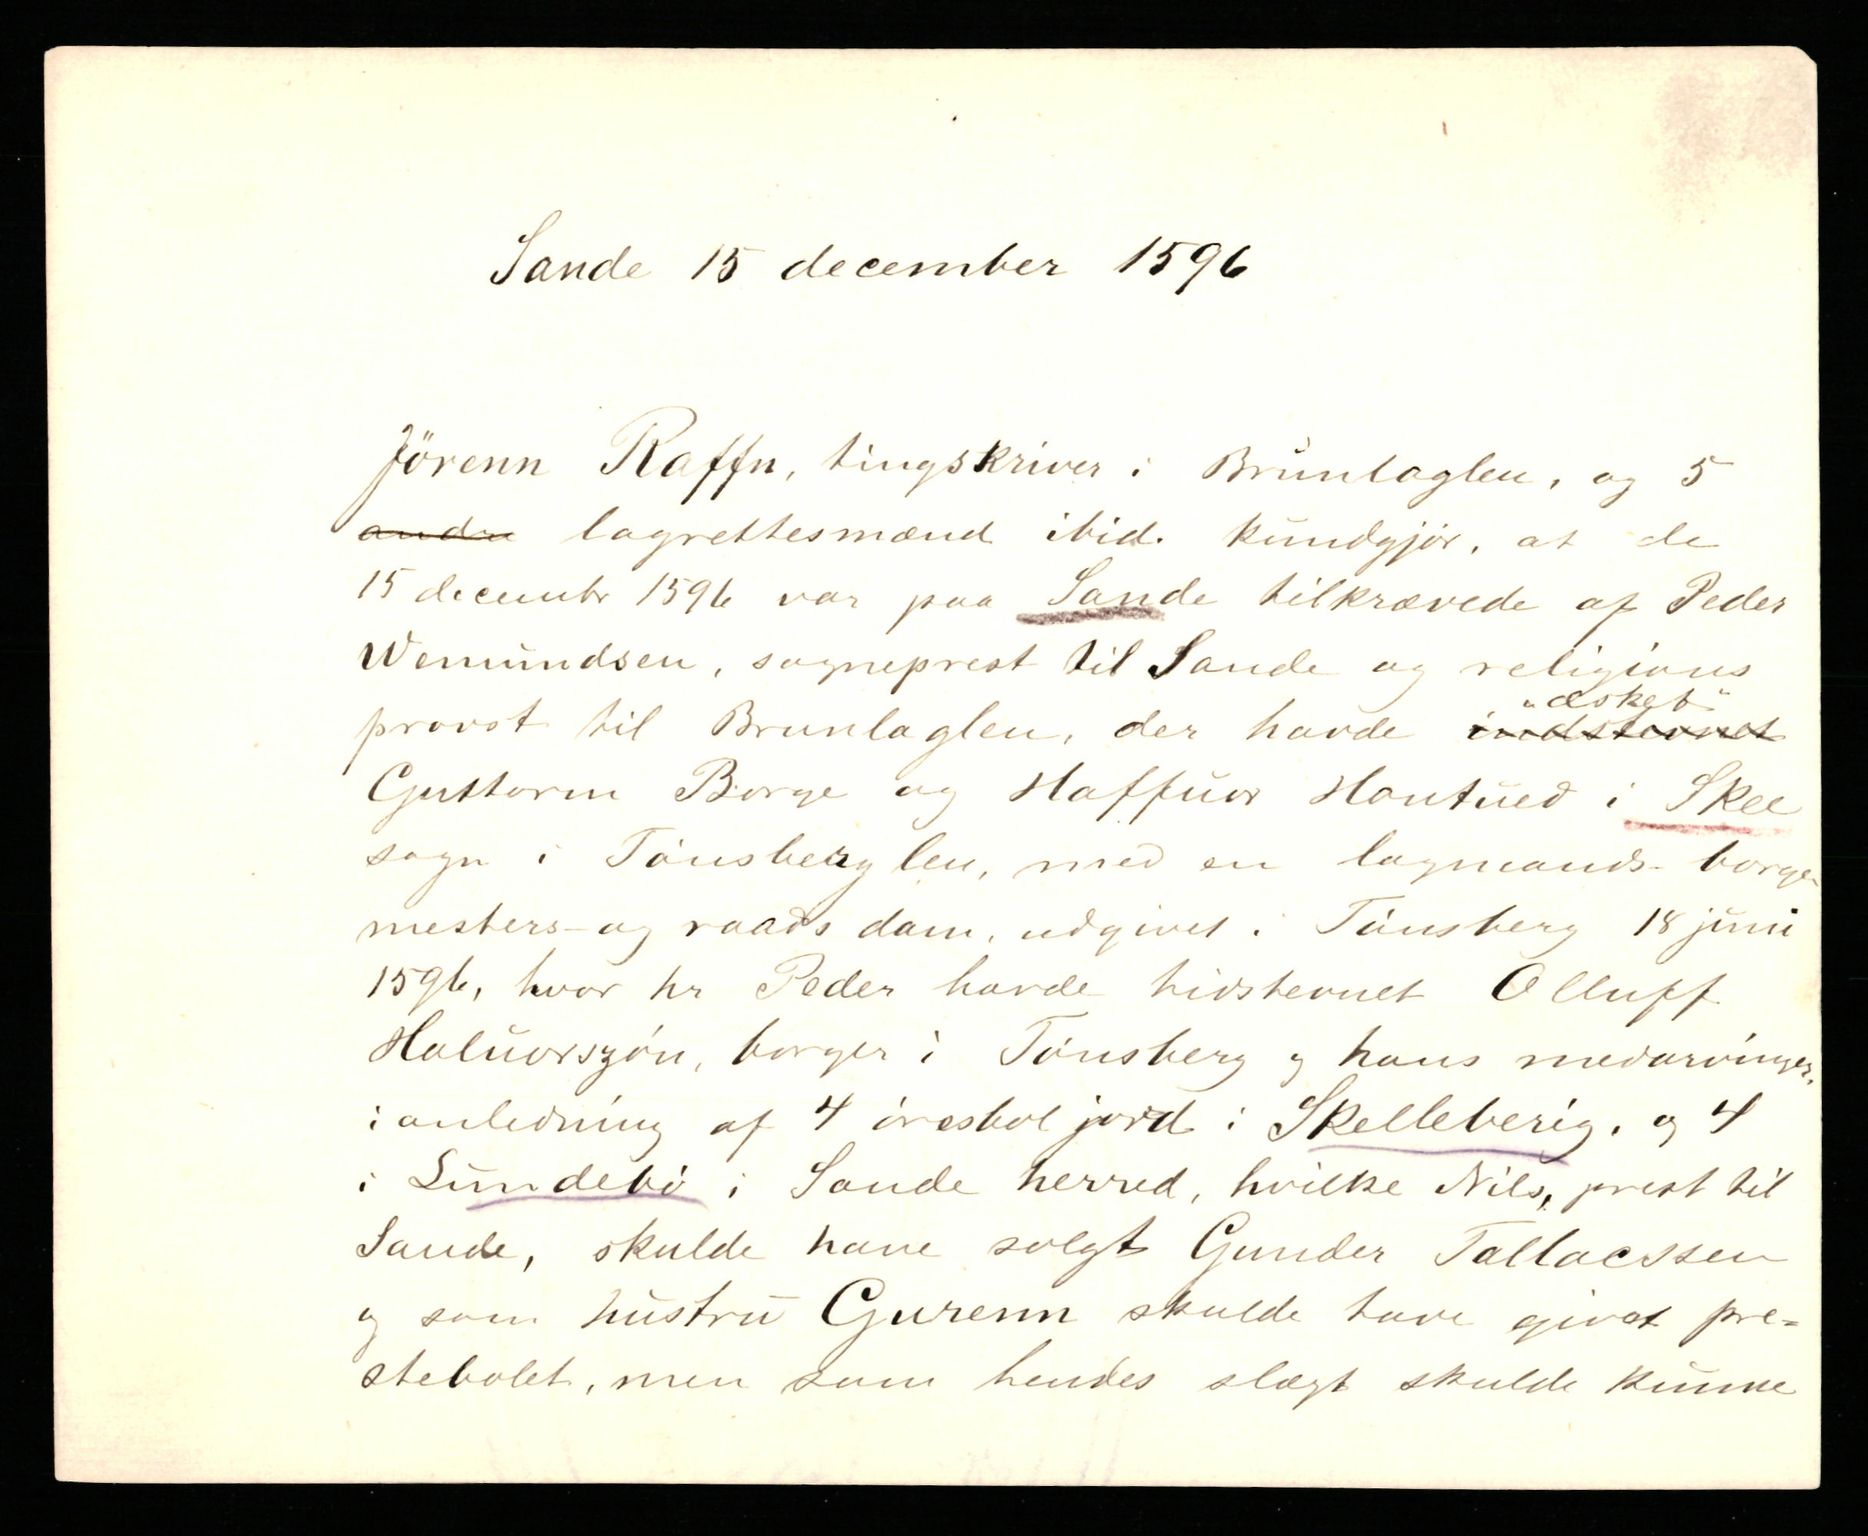 Sande 15 december 1596
Jörenn Raffn, tingskriver i Brunlaglen, og 5
andre lagrettesmænd ibid. kundgjør, at de
15 decembr 1596 var paa Sande tilkrævede af Peder
Wemundsen, sogneprest til Sande og religions
"æsket"
provst til Brunlaglen, der havde indstevnet
Guttorm Borge og Haffuor Hontued i Skee
sogn i Tönsberg len, med en lagmands- borge-
mesters- og raads dom, udgivet i Tönsberg 18 juni
1596, hvor hr Peder havde hidstevnet Olluff
Haluorszön, borger i Tönsberg og hans medarvinger,
i anledning af 4 öresbol jord i Skelleberig, og 4
i Lundebö i Sande herred, hvilke Nils, prest til
Sande, skulde have solgt Gunder Tallacssen
og som hustru Gurenn skulde have givet pre=
stebolet, men som hendes slægt skulde kunne